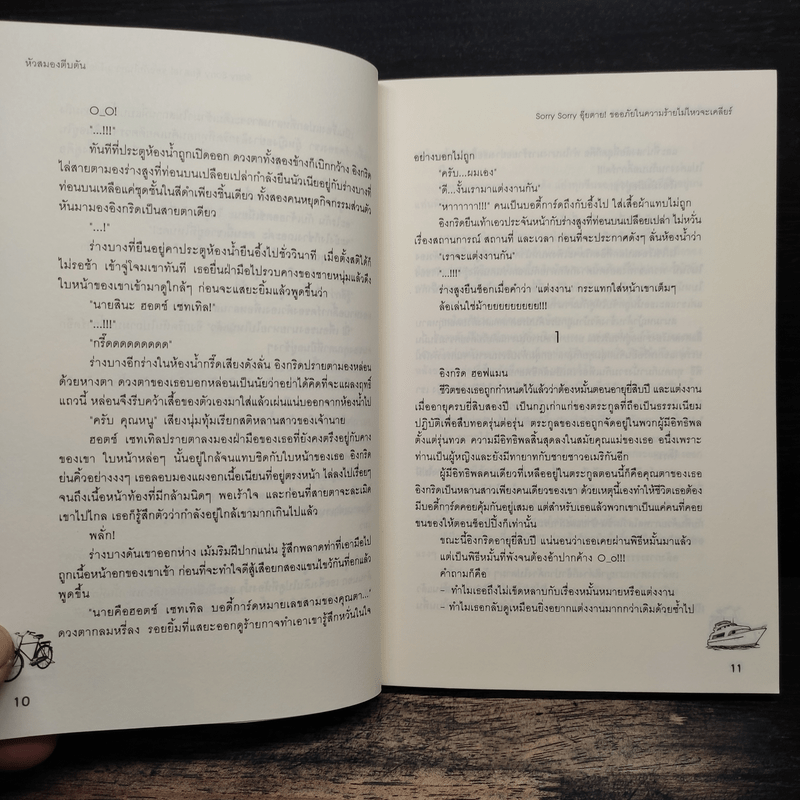 หัวสมองตีบตัน
O_O!
"...!!!"
ทันทีที่ประตูห้องน้ำถูกเปิดออก ดวงตาทั้งสองข้างก็เบิกกว้าง อิงกริด
ไล่สายตามองร่างสูงที่ท่อนบนเปลือยเปล่ากำลังยืนนัวเนียอยู่กับร่างบางที่
ท่อนบนเหลือแค่ชุดชั้นในสีดำเพียงชิ้นเดียว ทั้งสองคนหยุดกิจกรรมส่วนตัว
หันมามองอิงกริดเป็นสายตาเดียว
"...!"
ร่างบางที่ยืนอยู่คาประตูห้องน้ำยืนอึ้งไปชั่ววินาที เมื่อตั้งสติได้ก็
ไม่รอช้า เข้าจู่โจมเขาทันที เธอยื่นฝ่ามือไปรวบคางของชายหนุ่มแล้วดึง
ใบหน้าของเขาเข้ามาดูใกล้ๆ ก่อนจะแสยะยิ้มแล้วพูดขึ้นว่า
"นายสินะ ฮอตซ์ เซทเทิล!"
"...!!!"
"กรี๊ดดดดดดดดดด"
ร่างบางอีกร่างในห้องน้ำกรี๊ดเสียงดังลั่น อิงกริดปรายตามองหล่อน
ด้วยหางตา ดวงตาของเธอบอกหล่อนเป็นนัยว่าอย่าได้คิดที่จะแผลงฤทธิ์
แถวนี้ หล่อนจึงรีบคว้าเสื้อของตัวเองมาใส่แล้วเผ่นแน่บออกจากห้องน้ำไป
"ครับ คุณหนู" เสียงนุ่มทุ้มเรียกสติหลานสาวของเจ้านาย
ฮอตซ์ เซทเทิลปรายตาลงมองฝ่ามือของเธอที่ยังคงตรึงอยู่กับคาง
ของเขา ใบหน้าหล่อๆ นั้นอยู่ใกล้จนแทบชิดกับใบหน้าของเธอ อิงกริด
ย่นคิ้วอย่างงงๆ เธอลอบมองแผงอกเนื้อเนียนที่อยู่ตรงหน้า ไล่ลงไปเรื่อยๆ
จนถึงเนื้อหน้าท้องที่มีกล้ามนิดๆ พอเร้าใจ และก่อนที่สายตาจะละเมิด
เขาไปไกล เธอก็รู้สึกตัวว่ากำลังอยู่ใกล้เขามากเกินไปแล้ว
พลั่ก!
ร่างบางดันเขาออกห่าง เม้มริมฝีปากแน่น รู้สึกพลาดท่าที่เอามือไป
ถูกเนื้อหน้าอกของเขาเข้า ก่อนที่จะทำใจดีสู้เสือยกสองแขนไขว้กันที่อกแล้ว
พูดขึ้น
"นายคือฮอตซ์ เซทเทิล บอดี้การ์ดหมายเลขสามของคุณตา..."
ดวงตากลมหรี่ลง รอยยิ้มที่แสยะออกดูร้ายกาจทำเอาเขารู้สึกหวั่นในใจ
10
Sorry Sorry อุ๊ยตาย! ขออภัยในความร้ายไม่ไหวจะเคลียร์
อย่างบอกไม่ถูก
"ครับ...ผมเอง"
"ดี...งั้นเรามาแต่งงานกัน"
"หาาาาาา!!!" คนเป็นบอดี้การ์ดถึงกับอึ้งไป ใส่เสื้อผ้าแทบไม่ถูก
อิงกริดยืนเท้าเอวประจันหน้ากับร่างสูงที่ท่อนบนเปลือยเปล่า ไม่หวั่น
เรื่องสถานการณ์ สถานที่ และเวลา ก่อนที่จะประกาศดังๆ ลั่นห้องน้ำว่า
"เราจะแต่งงานกัน"
"...!!!"
ร่างสูงยืนช็อกเมื่อคำว่า 'แต่งงาน' กระแทกใส่หน้าเขาเต็มๆ
ล้อเล่นใช่ม้ายยยยยยยย!!!
1
อิงกริด ฮอฟแมน
ชีวิตของเธอถูกกำหนดไว้แล้วว่าต้องหมั้นตอนอายุยี่สิบปี และแต่งงาน
เมื่ออายุครบยี่สิบสองปี เป็นกฎเก่าแก่ของตระกูลที่ถือเป็นธรรมเนียม
ปฏิบัติเพื่อสืบทอดรุ่นต่อรุ่น ตระกูลของเธอถูกจัดอยู่ในพวกผู้มีอิทธิพล
ตั้งแต่รุ่นทวด ความมีอิทธิพลสิ้นสุดลงในสมัยคุณแม่ของเธอ อนึ่งเพราะ
ท่านเป็นผู้หญิง และยังมีทายาทกับชายชาวอเมริกันอีก
ผู้มีอิทธิพลคนเดียวที่เหลืออยู่ในตระกูลตอนนี้ก็คือคุณตาของเธอ
อิงกริดเป็นหลานสาวเพียงคนเดียวของเขา ด้วยเหตุนี้เองทำให้ชีวิตเธอต้อง
มีบอดี้การ์ดคอยคุ้มกันอยู่เสมอ แต่สำหรับเธอแล้วพวกเขาเป็นแค่คนที่คอย
ขนของให้ตอนช็อปปิ้งก็เท่านั้น
ขณะนี้อิงกริดอายุยี่สิบปี แน่นอนว่าเธอเคยผ่านพิธีหมั้นมาแล้ว
แต่เป็นพิธีหมั้นที่พังจนต้องอ้าปากค้าง O_o!!!
คำถามก็คือ
- ทำไมเธอถึงไม่เข็ดหลาบกับเรื่องหมั้นหมายหรือแต่งงาน
- ทำไมเธอกลับดูเหมือนยิ่งอยากแต่งงานมากกว่าเดิมด้วยซ้ำไป
11